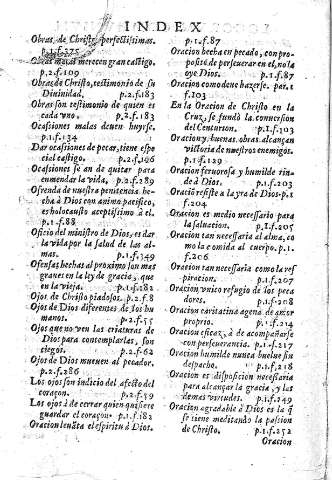 INDEX
Obras de Christo perfectissimas.
p.1.f.375
Obras malas merecen gran castigo.
p.2.f.109
Obras de Christo, testimonio de su
Diuinidad. p.2.f.183
Obras son testimonio de quien es
cada vno. p.2.f.183
Ocasiones malas deuen huyrse.
p.1.f.134
Dar ocasiones de pecar, tiene espe
cial castigo. p.2.f.106
Ocasiones se an de quitar para
enmendar la vida. p.2.f.289
Ofrenda de nuestra penitencia he-
cha à Dios con animo pacifico,
es holocausto aceptissimo à el.
p.1.f.88
Oficio del ministro de Dios, es dar
la vida por la salud de las al-
mas. p.1.f.349
Ofensas hechas al proximo son mas
graues en la ley de gracia, que
en la vieja. p.1.f.182
Ojos de Christo piadosos. p.2.f.8
Ojos de Dios diferentes de los hu
manos. p.2.f.55
Ojos que no ven las criaturas de
Dios para contemplarlas, son
ciegos. p.2.f.62
Ojos de Dios mueuen al pecador.
p.2.f.286
Los ojos son indicio del afecto del
coraçon. p.2.f.59
Los ojos à de cerrar quien quisiere
guardar el coraçon. p.1.f.182
Oracion leuãta el espiritu à Dios.
p.1.f.87
Oracion hecha en pecado, con pro-
posito de perseuerar en el, no la
oye Dios. p.1.f.87
Oracion como deue hazerse. par.1
f.103
En la Oracion de Christo en la
Cruz, se fundò la conuersion
del Centurion. p.1.f.103
Oracion y buenas obras alcançan
victoria de nuestros enemigos.
p.1.f.129
Oracion feruorosa y humilde rin-
de à Dios. p.1.f.203
Oraciõ resiste a la yra de Dios. p.1
f.204
Oracion es medio necessario para
la saluacion. p.1.f.205
Oracion tan necessaria al alma, co
mo la comida al cuerpo. p.1.
f.206
Oracion tan necessaria como la res
piracion. p.1.f.207
Oracion vnico refugio de los peca
dores. p.1.f.208
Oracion caritatiua agena de amor
proprio. p.1.f.214
Oracion eficaz, à de acompañarse
con perseuerancia. p.1.f.217
Oracion humilde nunca buelue sin
despacho. p.1.f.218
Oracion es disposicion necessaria
para alcançar la gracia, y las
demas virtudes. p.1.f.249
Oracion agradable à Dios es la q̃
se tiene meditando la passion
de Christo. p.1.f.252
Oracion